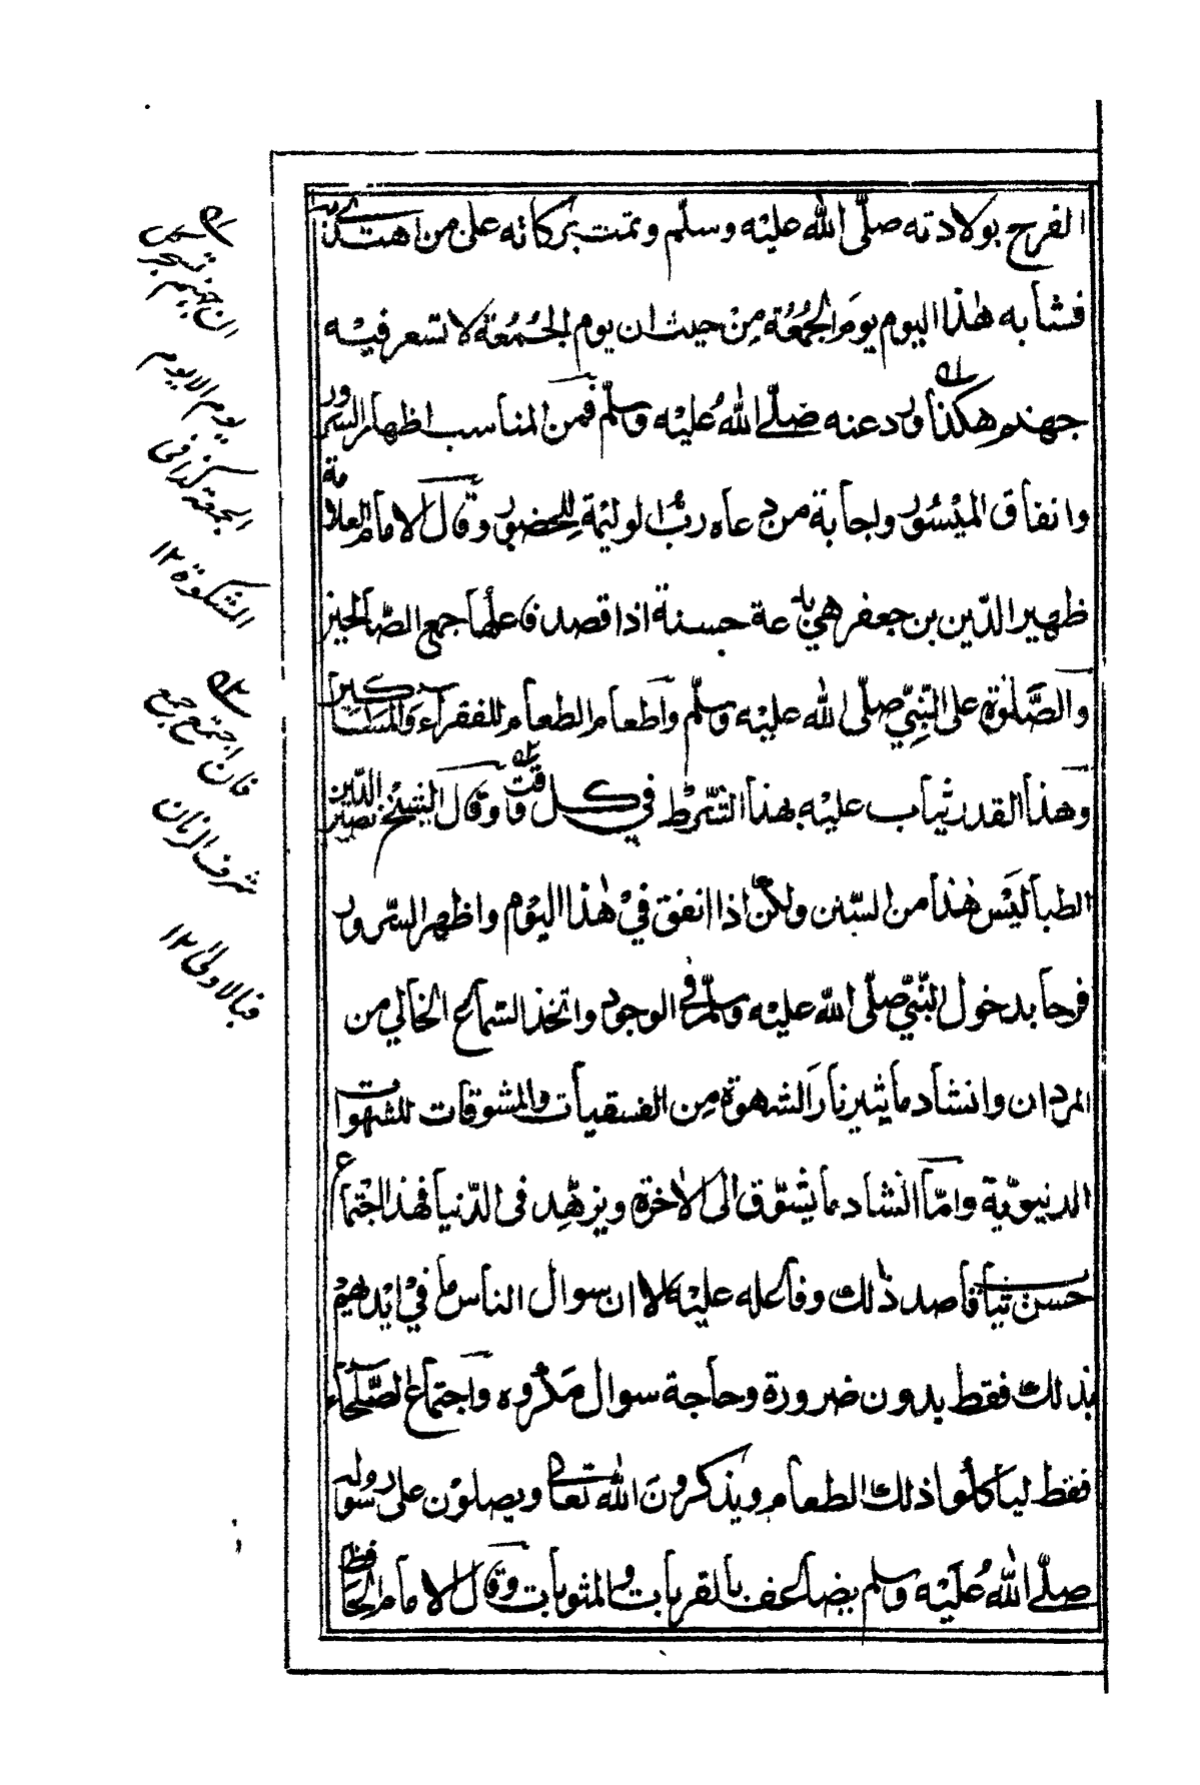 الفرح بولادته صلّى الله عليه وسلّم وتمت بركاته على من اهتدى به
فشابه هذا اليوم يوم الجمعة من حيث ان يوم الجمعة لا تسعر فيه
جهنم هكذا ورد عنه صلّى الله عليه وسلّم فمن المناسب اظهار السرور
وانفاق الميسور واجابة من دعاه ربّ الوليمة للحضور وقال الامام العلامة
ظهير الدّين بن جعفر هي بدعة حسنة اذا قصد فاعلها جمع الصّالحين
والصّلوة على النّبيّ صلّى الله عليه وسلّم واطعام الطعام للفقراء والمساكين
وهذا القدر يثاب عليه بهذا الشّرط في كل وقت وقال الشيخ نصير الدّين
الطبا ليس هذا من السّنن ولكن اذا انفق في هذا اليوم واظهر السّرور
فرحا بدخول النّبيّ صلّى الله عليه وسلّم في الوجود واتخذ السّماع الخالي من
المردان وانشاد ما يثير نار الشهوة من الفسقيات والمشوقات للشهوات
الدنيويّة وامّا انشاد ما يشوّق الى الاخرة ويزهّد في الدّنيا فهذا اجتماع
حسن يثاب قاصد ذلك وفاعله عليه الا ان سوال الناس ما في ايديهم
بذلك فقط بدون ضرورة وحاجة سوال مكروه واجتماع الصّلحاء
فقط لياكلوا ذلك الطعام ويذكرون الله تعالى ويصلون على رسوله
صلّى الله عليه وسلم يضاعف بالقربات والمثوبات وقال الامام الحافظ
ان جهنم تسجر
يوم الا يوم
الجمعة كذا في
المشكوة ١٢
فان اجتمع مع
شرف الزمان
فبالاولى ١٢